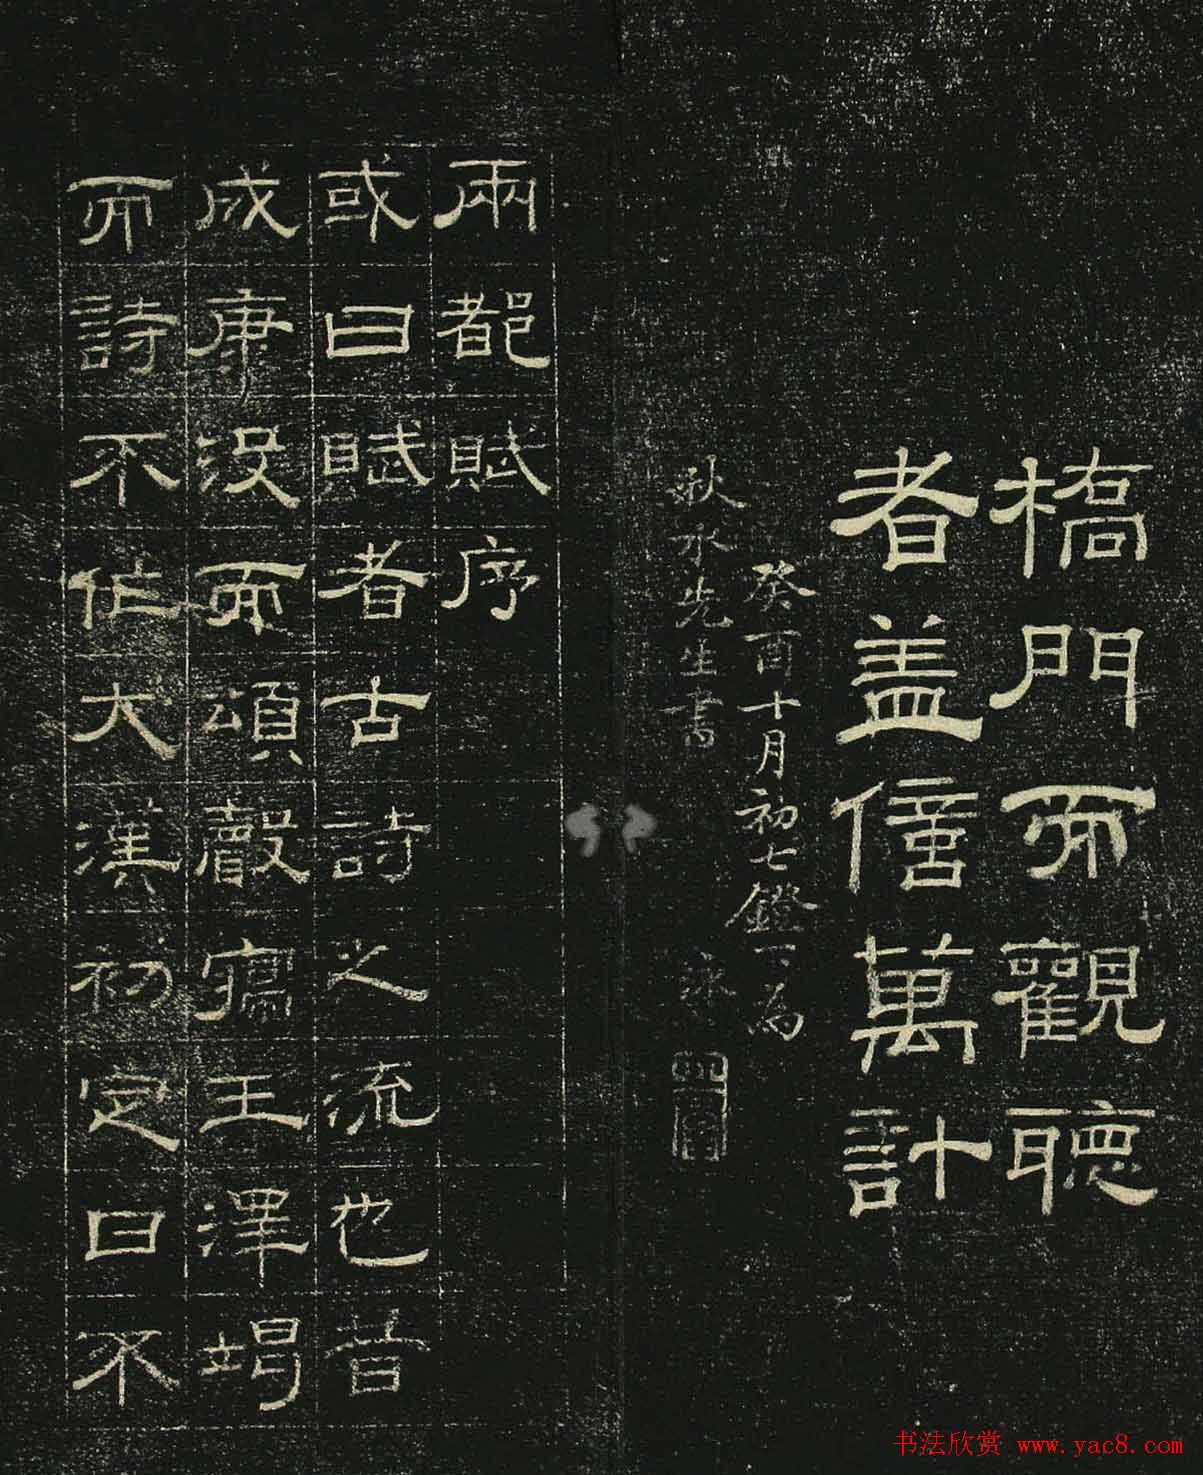 橋門而觀聽
者蓋億萬計
癸酉十月初七鐙下為
秋水先生書 泳
兩都賦序
或曰賦者古詩之流也昔
成康沒而頌聲寢王澤竭
而詩不作大漢初定日不
书法欣赏 www.yac8.com